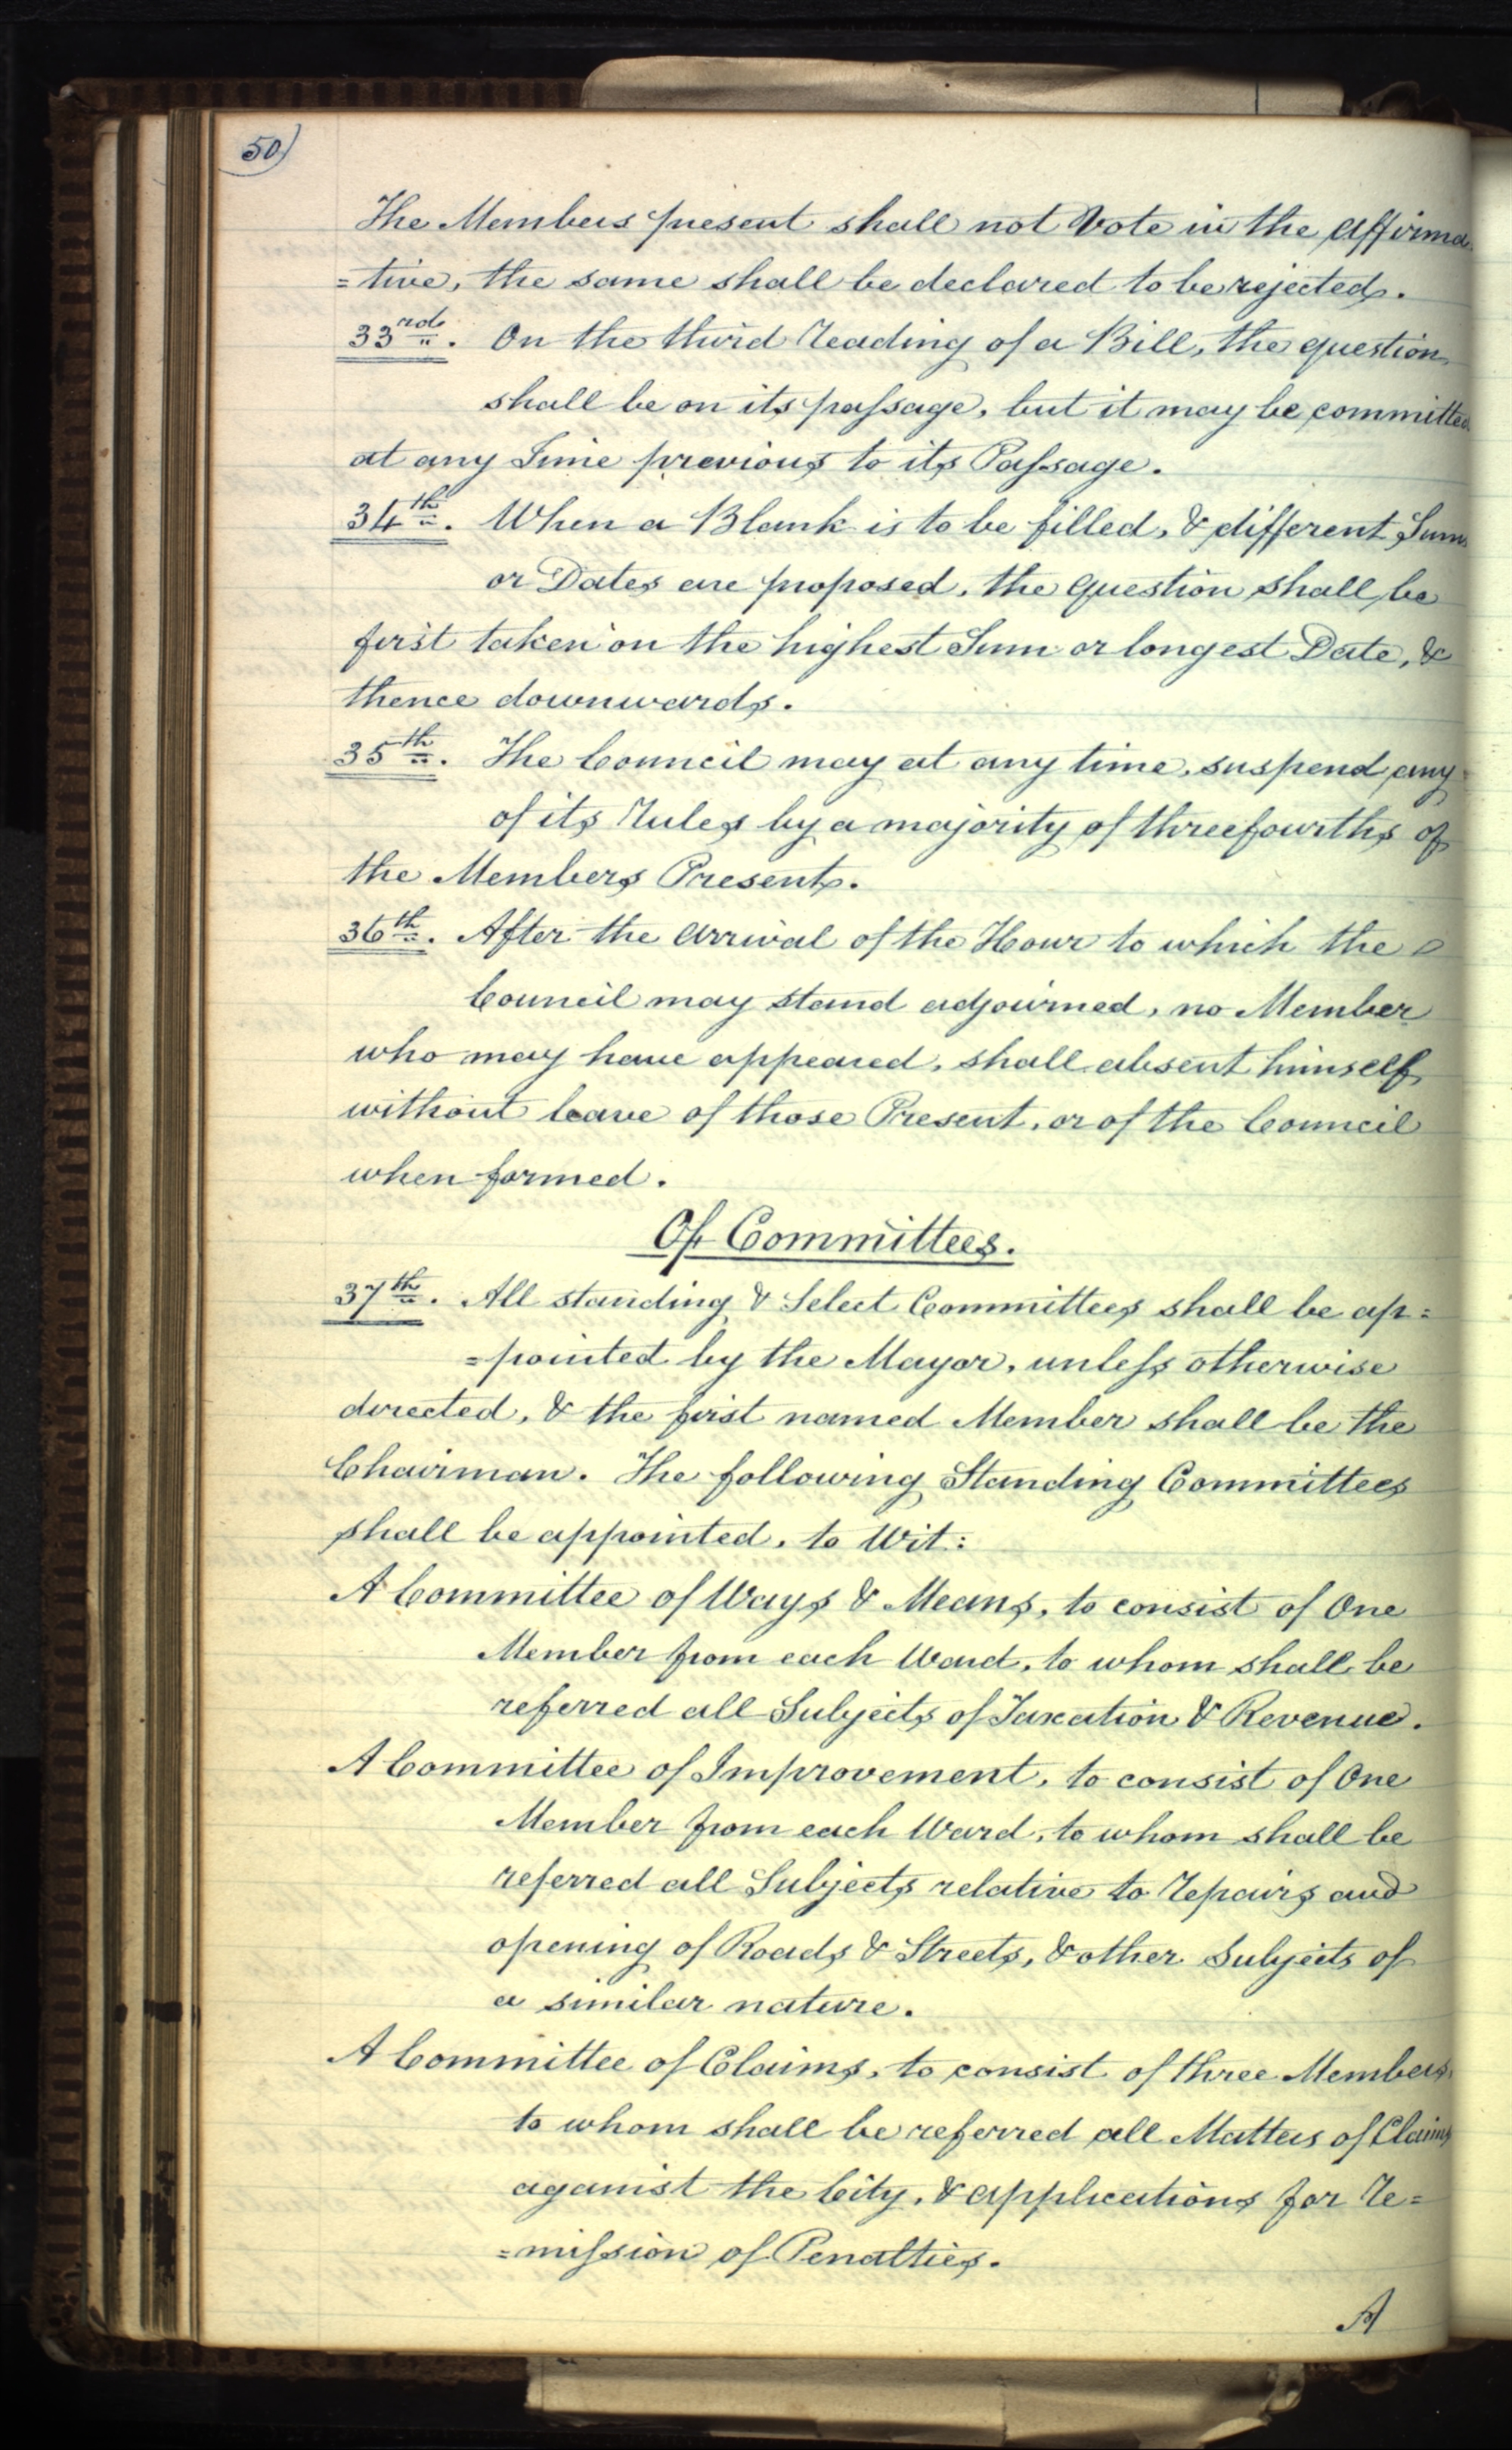 50)
The Members present shall not Vote in the affirma
=tive, the same shall be declared to be rejected.
33rd. On the third reading of a Bill, the question
shall be on its paſsage, but it may be committed
at any Time previous to its Paſsage.
34th. When a Blank is to be filled, & different Sums
or Dates are proposed, the question shall be
first taken on the highest Sum or longest Date, &
thence downwards.
35th. The Council may at any time, suspend any
of its rules by a majority of threefourths of
the Members Present.
36th. After the arrival of the Hour to which the
Council may stand adjourned, no Member
who may have appeared, shall absent himself
without leave of those Present, or of the Council
when formed.
Of Committees.
37th. All standing & Select Committees shall be ap=
=pointed by the Mayor, unleſs otherwise
directed, & the first named Member shall be the
Chairman. The following Standing Committees
shall be appointed, to Wit:
A Committee of Ways & Means, to consist of One
Member from each Ward, to whom shall be
referred all Subjects of Taxation & Revenue.
A Committee of Improvement, to consist of One
Member from each Ward, to whom shall be
referred all Subjects relative to repairs and
opening of Roads & Streets, & other Subjects of
a similar nature.
A Committee of Claims, to consist of three Members,
to whom shall be referred all Matters of Claims
against the City, & applications for re=
=miſsion of Penalties.
A